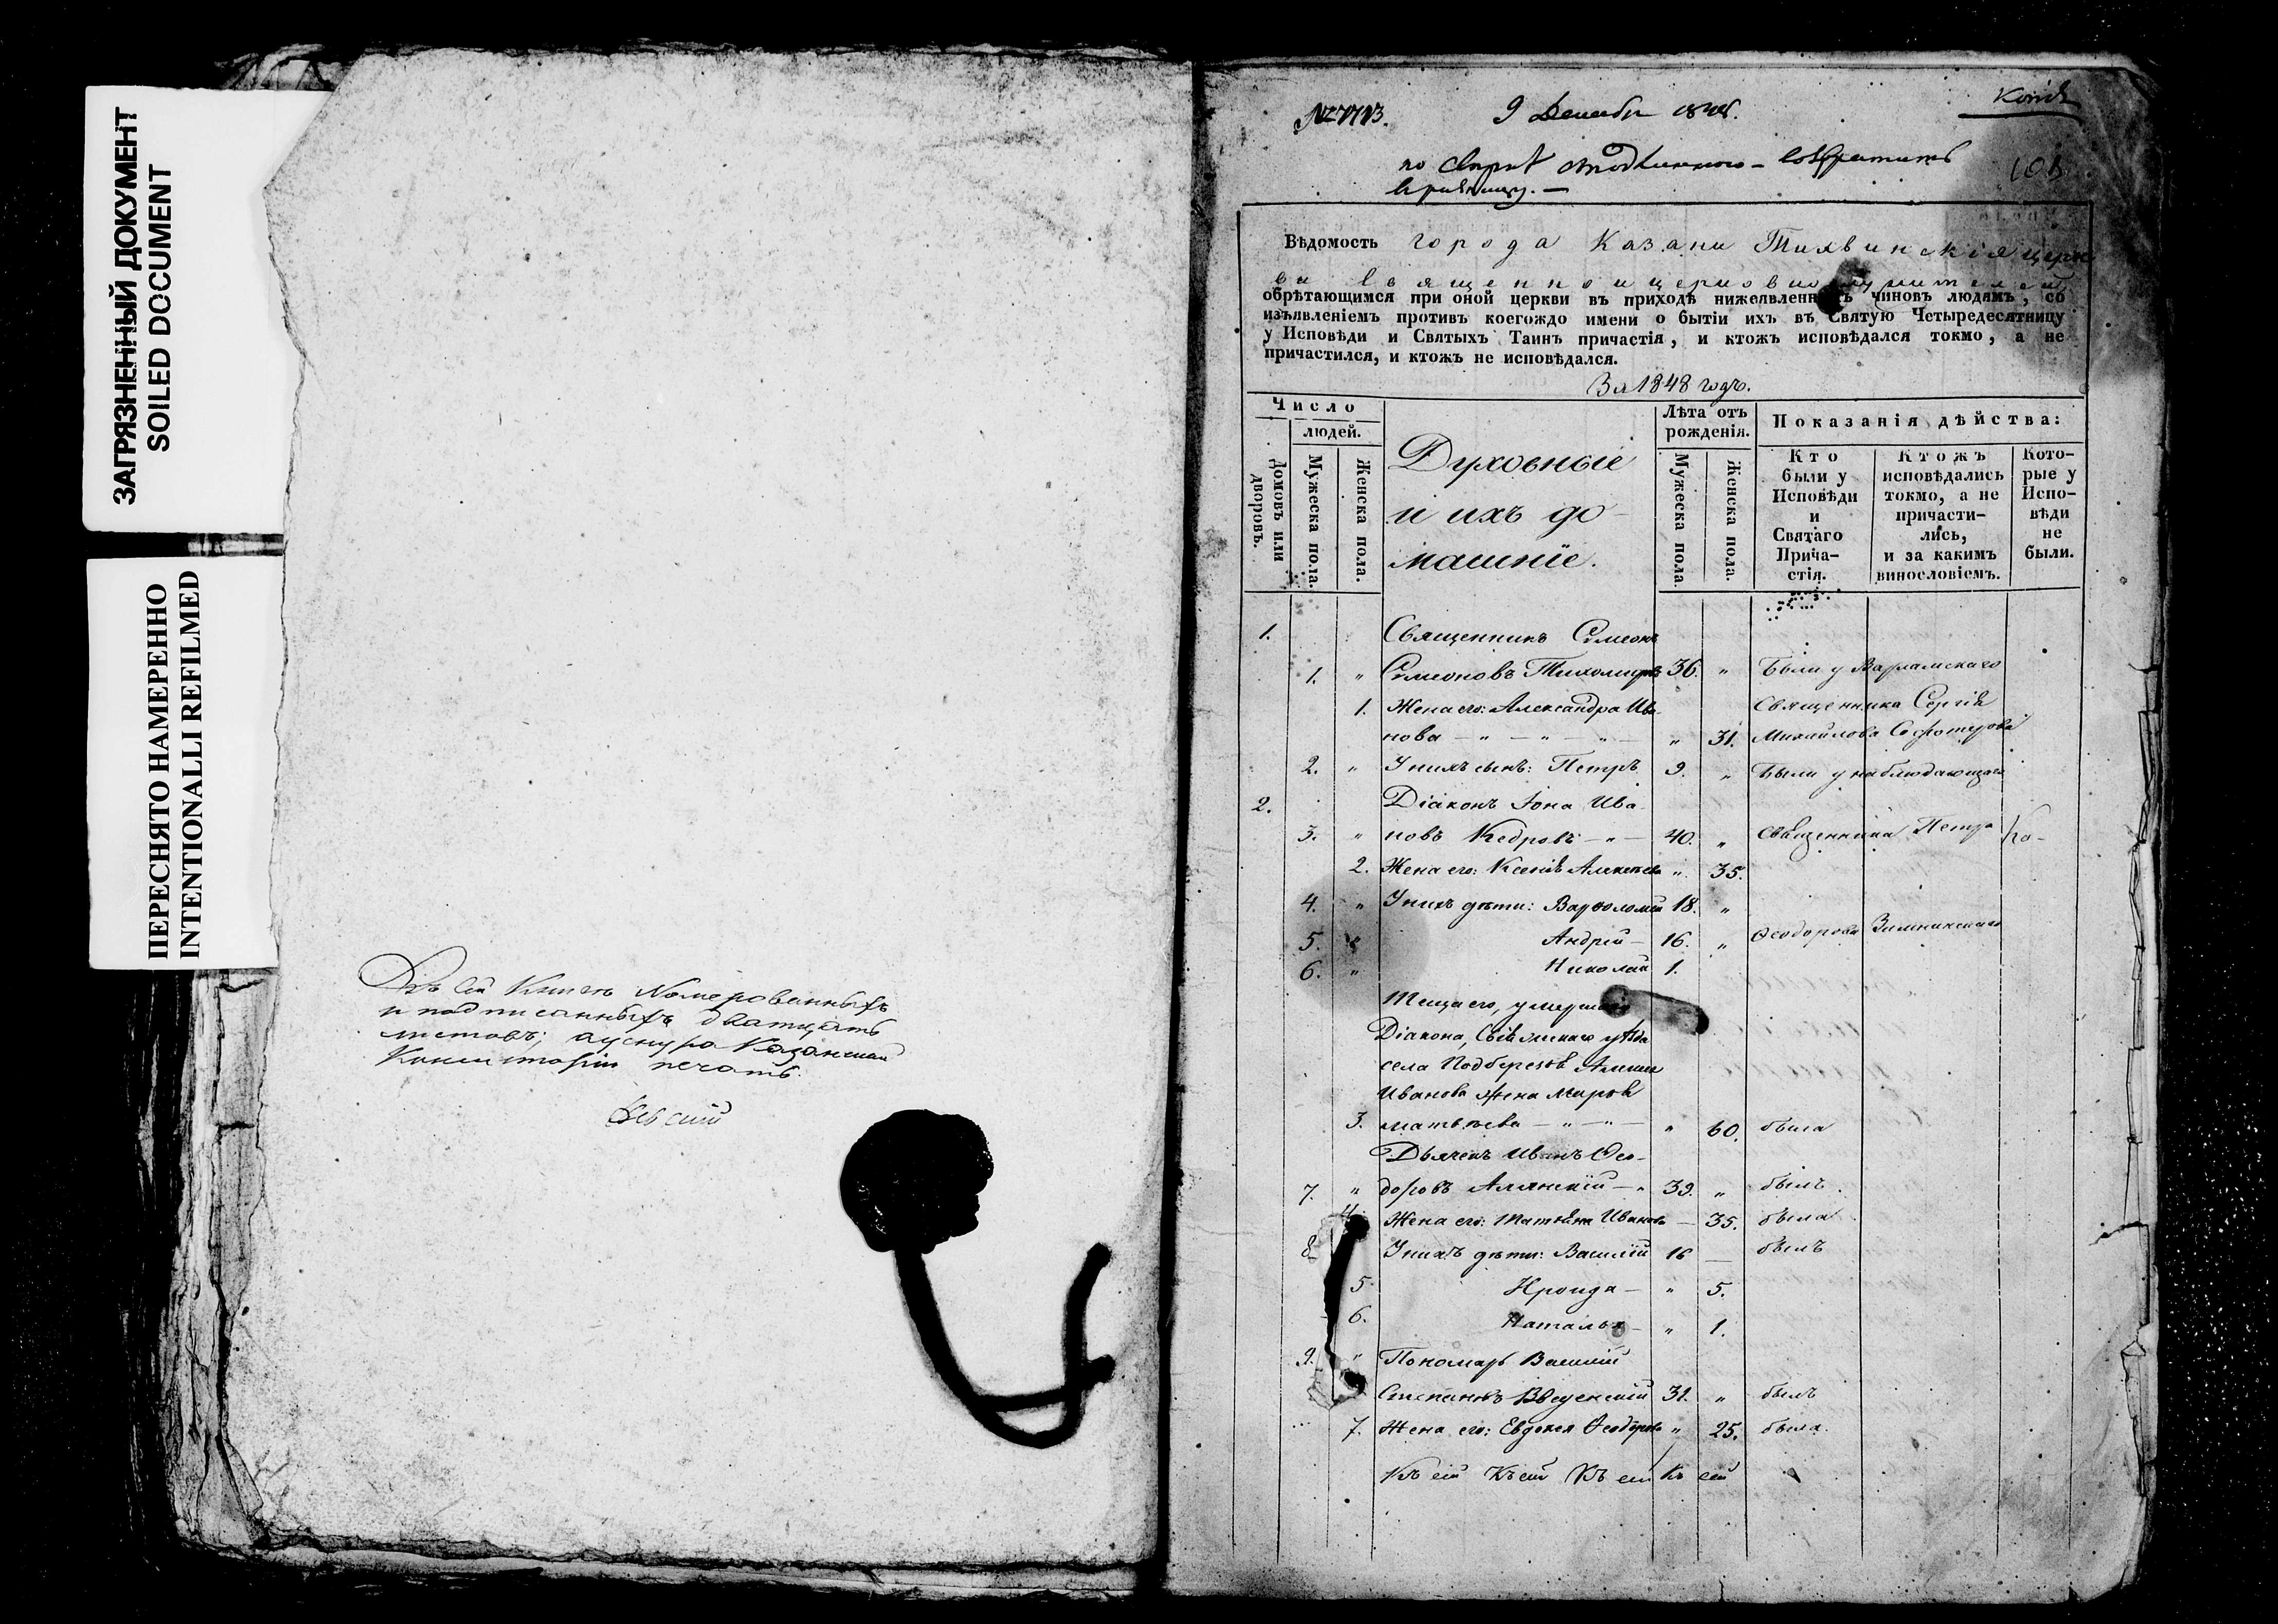 ЗАГРЯЗНЕННЫЙ ДОКУМЕНТ
SOILED DOCUMENT
ПЕРЕСНЯТО НАМЕРЕННО
INTENTIONALLI REFILMED
Въ сей Книгѣ Номерованныхъ
и подписанныхъ дватцать
листовъ; а у снура Казанской
Консисторіи печать.
9 Декабр 1848.
Вѣдомость города Казани Тихвинскія церк
ви Священно и церковно
обрѣтающимся при оной церкви въ приходѣ нижеявленныхъ чиновъ людямъ, со
изъявленіемъ противъ коегождо имени о бытіи ихъ въ Святую Четыредесятницу
у Исповѣди и Святыхъ Таинъ причастія, и ктожъ исповѣдался токмо, а не
причастился, и ктожъ не исповѣдался.
За 1848 годъ.
Число
людей.
Домовъ или дворовъ.
Мужеска пола.
Женска пола.
Духовныіе
и ихъ до-
машніе.
Лѣта отъ
рожденія.
Мужеска пола.
Женска пола.
Показанія дѣйства:
Кто
были у
Исповѣди
и
Святаго
Прича-
стія.
Ктожъ
исповѣдались
токмо, а не
причасти-
лись,
и за какимъ
винословіемъ.
Кото-
рые у
Испо-
вѣди
не
были.
1. Священникъ Симеонъ
1. " Симеоновъ Тихомировъ 36. " Были у Варламскаго
1. Жена его: Александра Ива- Священника Сергія
нова — " — " — " — " 31. Михайлова
2. " У нихъ сынъ: Петръ 9. " Были у наблюдающаго
2. Діаконъ Іона Ива-
3. " новъ Кедровъ — " — 40. " Священника Петра
2. Жена его: Ксенія Алексѣева " 35.
4. " У нихъ дѣти: Варѳоломей 18. "
5. " Андрей — 16. " Ѳеодорова
6. " Николай 1.
Теща его, умершаго
Діакона, Свіяжскаго уѣзда
села Подберезья
Иванова жена Марѳа
3. Матвѣева — " — " — " 60. была
Дьячекъ Иванъ Ѳео-
7. " доровъ — " 39. " былъ
4. Жена его: Татьяна Иванова — 35. была
8 У нихъ дѣти: Василій 16 — былъ
5. — " 5.
6. Наталья — " 1.
9. " Пономарь Василій
Степановъ Введенскій 31. " былъ
7. Жена его: Евдокія Ѳеодорова " 25. была.
Къ сей Къ сей Къ сей Къ сей